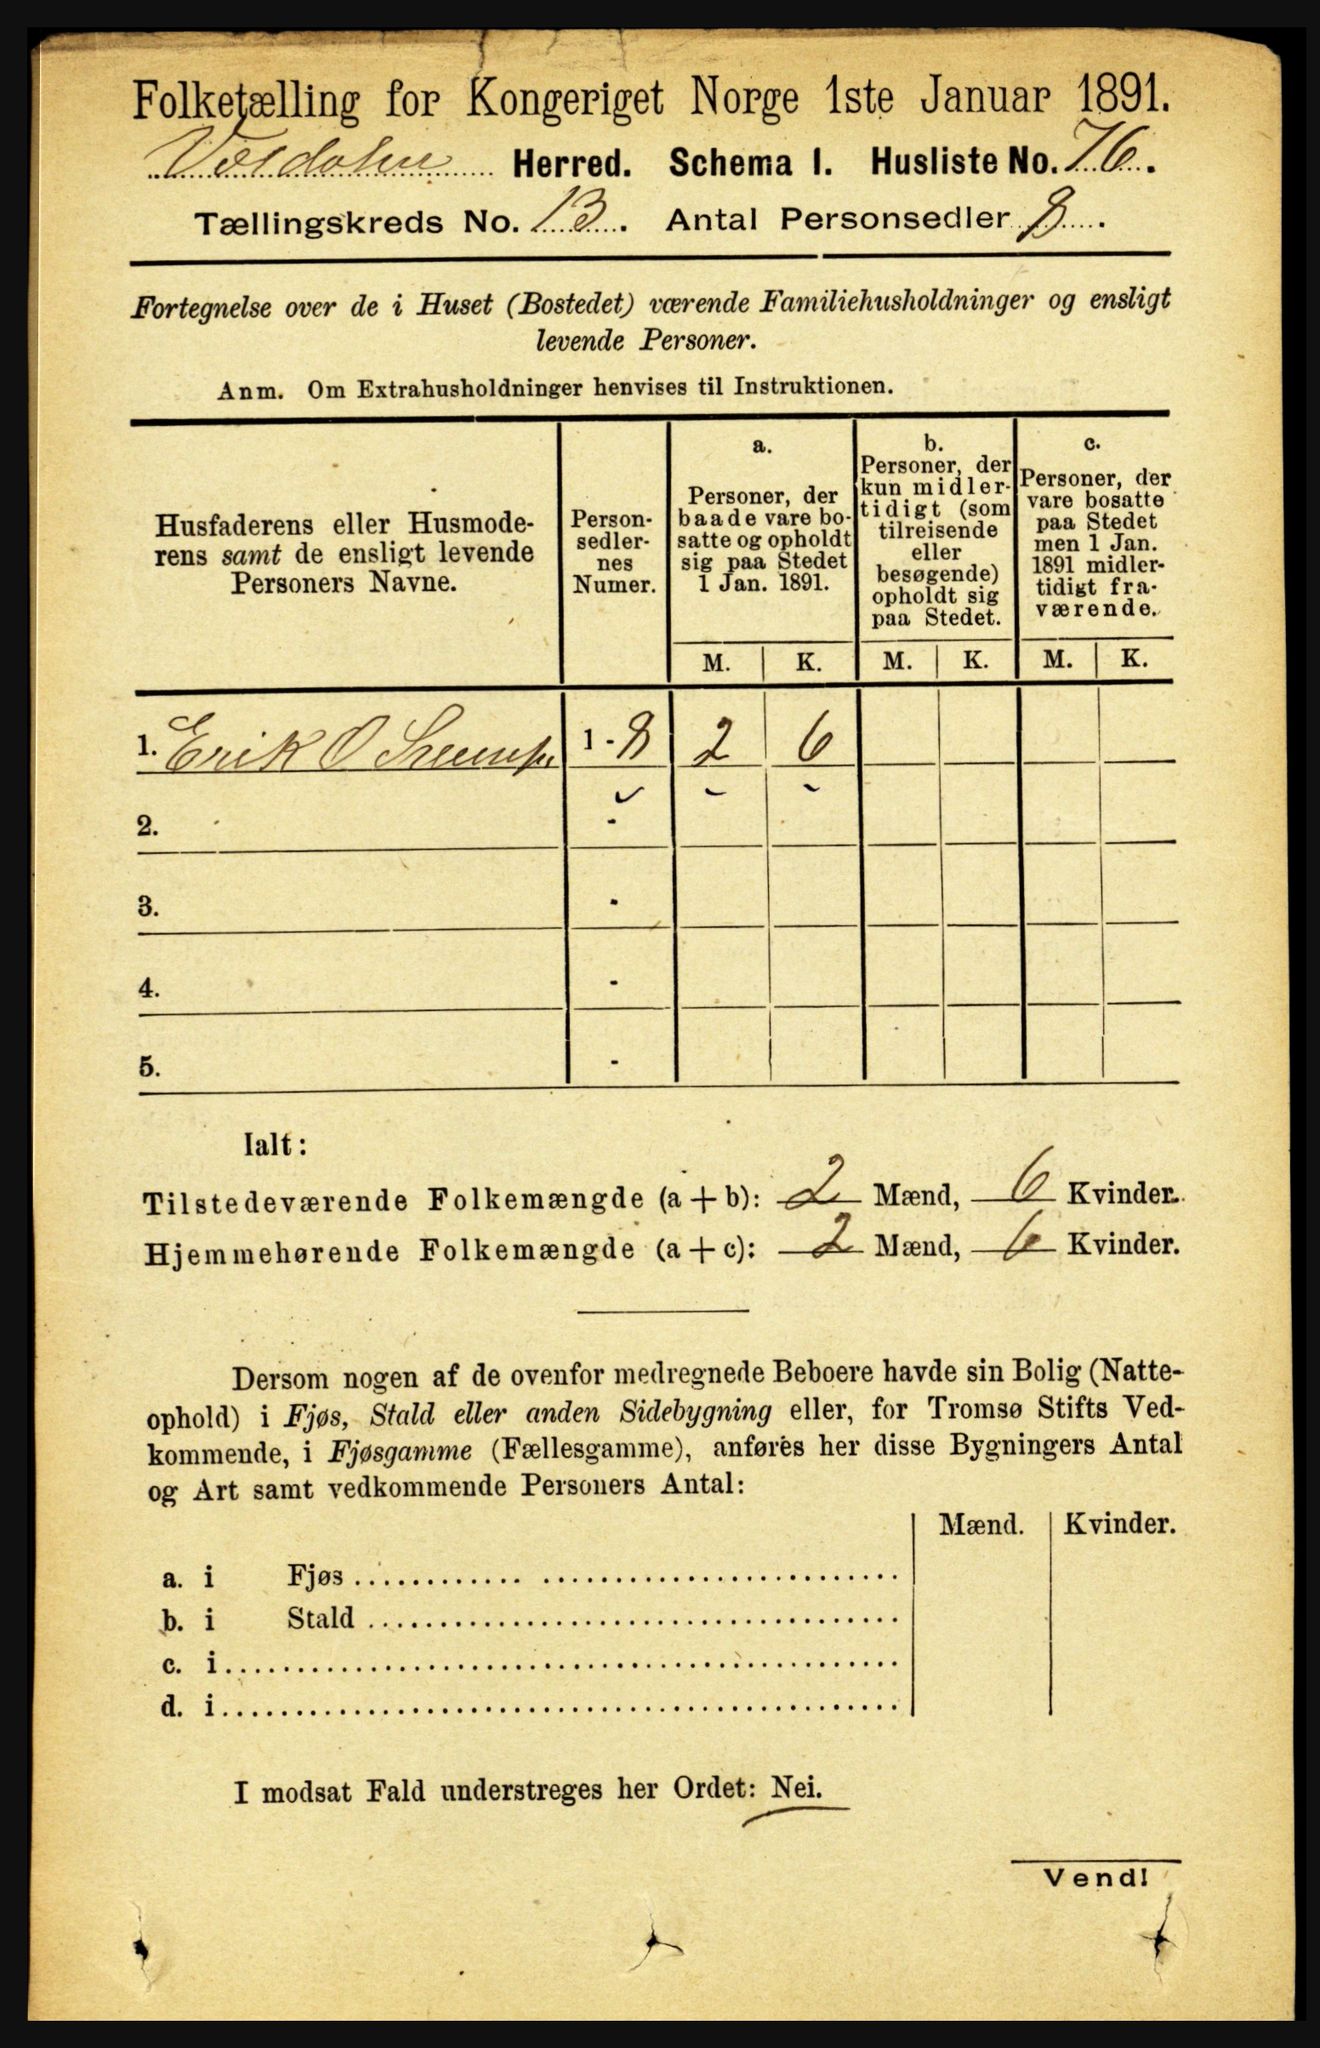 Folketælling for Kongeriget Norge 1ste Januar 1891.
Herred. Schema I. Husliste No. 76.
Tællingskreds No. 13. Antal Personsedler 8.
Fortegnelse over de i Huset (Bostedet) værende Familiehusholdninger og ensligt
levende Personer.
Anm. Om Extrahusholdninger henvises til Instruktionen.
Husfaderens eller Husmode-
rens samt de ensligt levende
Personers Navne.
Person-
sedler-
nes
Numer.
a.
Personer, der
baade vare bo-
satte og opholdt
sig paa Stedet
1 Jan. 1891.
b.
Personer, der
kun midler-
tidigt (som
tilreisende
eller
besøgende)
opholdt sig
paa Stedet.
c.
Personer, der
vare bosatte
paa Stedet
men 1 Jan.
1891 midler-
tidigt fra-
værende.
M. K. M. K. M. K.
1. Erik O 1 - 8 2 6
2. -
3. -
4. -
5. -
Ialt:
Tilstedeværende Folkemængde (a + b): 2 Mænd, 6 Kvinder.
Hjemmehørende Folkemængde (a + c): 2 Mænd, 6 Kvinder.
Dersom nogen af de ovenfor medregnede Beboere havde sin Bolig (Natte-
ophold) i Fjøs, Stald eller anden Sidebygning eller, for Tromsø Stifts Ved-
kommende, i Fjøsgamme (Fællesgamme), anføres her disse Bygningers Antal
og Art samt vedkommende Personers Antal:
Mænd. Kvinder.
a. i Fjøs
b. i Stald
c. i
d. i
I modsat Fald understreges her Ordet: Nei.
Vend!